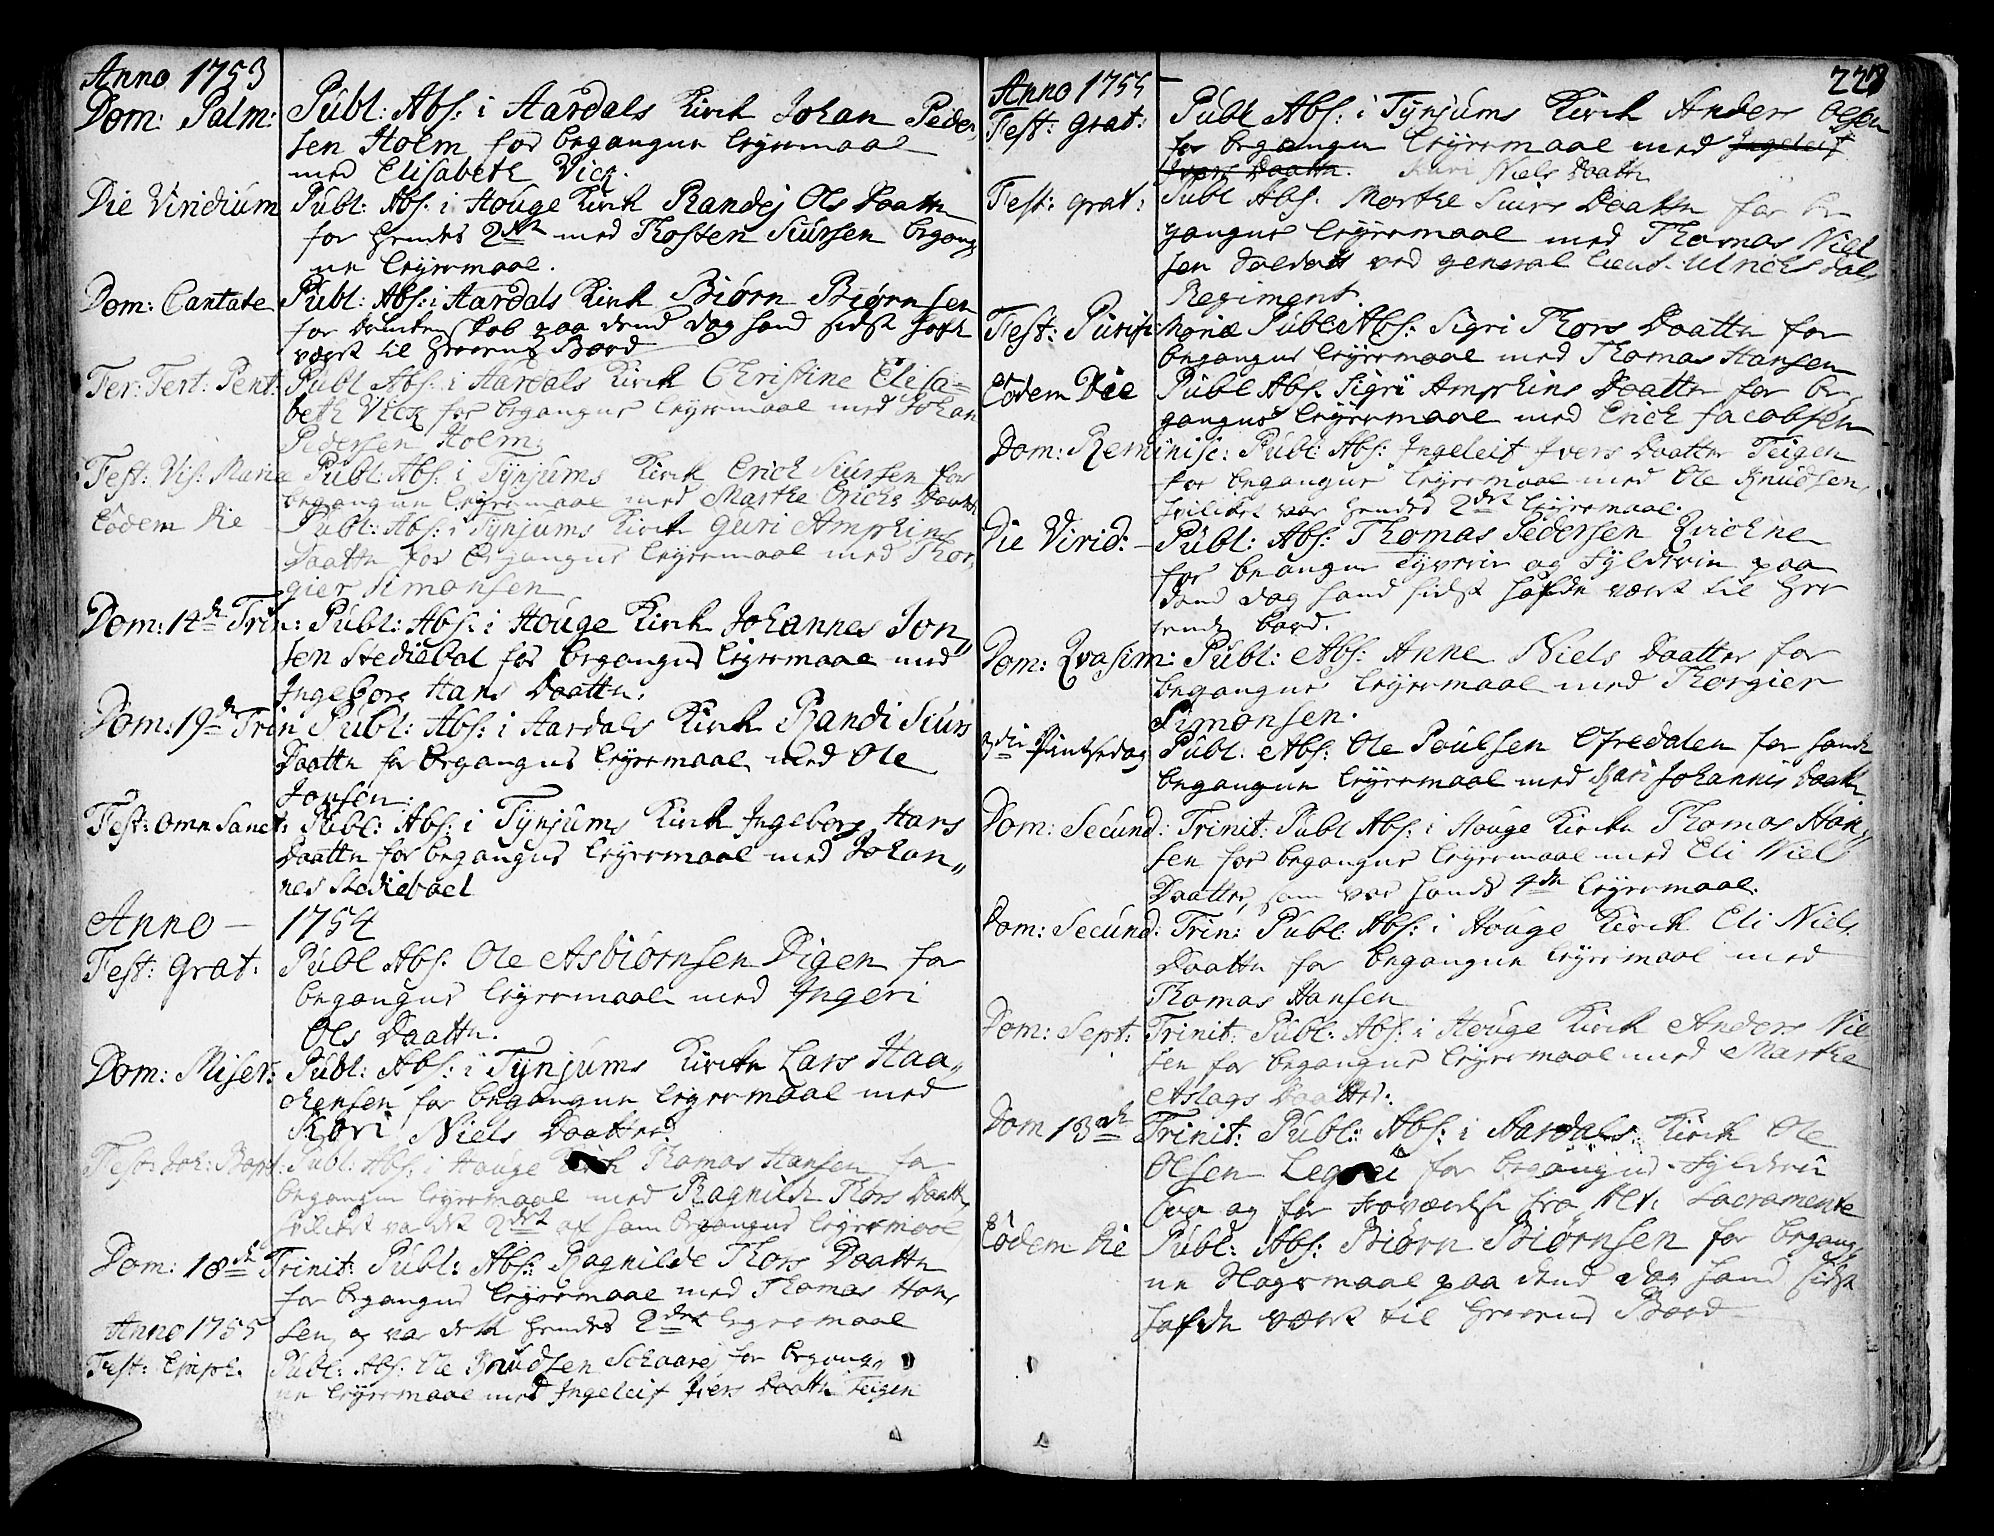 Anno 1753
Dom: Palm: Publ: Abs: i Aardals Kirck Johan Peder,,
sen Holm for begangne Leyermaal
med Elisabeth Vick.
Die Viridium Publ: Abs: i Houge Kirck Randej Ols Daatter
for hendes 2det med Thosten Siursen begang
ne Leyermaal.
Dom: Cantate Publ: Abs: i Aardals Kirck Biørn Biørnsen
for Druckenskab paa dend dag hand sidst hafde
vært til Herrens Bord
Fer: Tert: Pent: Publ Abs: i Aardals Kirck Christine Elisa=
beth Vick for begangne Leyermaal med Johan
Pedersen Holm.
Fest: Vis: Mariæ Publ: Abs: i Tynjums Kirck Erick Siursen for
begangne Leyermaal med Marthe Erichs Daatter
Eodem Die Publ: Abs: i Tynjums Kirck Guri Amphins
Daatter for begangne Leyermaal med Thor,
gier Simonsen
Dom: 14de Trin: Publ: Abs: i Houge Kirck Johannes Jon,,
sen Stediebol for begangne Leyermaal med
Ingeborg Hans Daatter.
Dom: 19de Trin Publ: Abs: i Aardals Kirck Randi Siurs
Daatter for begangne Leyermaal med Ole
Jonsen.
Fest: Omn Sanct: Publ: Abs: i Tynjums Kirck Ingeborg Hans
Daatter for begangne Leyermaal med Johan,,
nes Stedieboel
Anno — 1754
Fest: Grat: Publ Abs: Ole Asbiørnsen Digen for
begangne Leyermaal med Ingeri
Ols Daatter.
Dom: Miser: Publ: Abs: i Tynjums Kircke Lars Haa,,
chensen for begangne Leyermaal med
Kari Niels Daatter
Fest: Joh: Bapt: Publ: Abs: i Houge Kirck Thomas Hansen for
begangne Leyermaal med Ragnilde Thors Daatter
hvilcket var det 2det af ham begangne Leyermaal
Dom: 18de Trinit: Publ: Abs: Ragnilde Thors Daatter
for begangne Leyermaal med Thomas Han,
sen, og var dette hendes 2det Leyermaal
Anno 1755
Fest: Epiph. Publ: Abs: Ole Knudsen Schaarej for begang,,
ne Leyermaal med Ingeleif Ivers Daatter Teigen
227
Anno 1755 —
Fest: Grat: Publ Abs: i Tynjums Kirck Anders Olsen
for begangne Leyermaal med Ingeleif
Ivers Daatter. Kari Niels Daatter
Fest: Grat: Publ Abs: Marthe Siurs Daatter for be
gangne Leyermaal med Thomas Niel
sen Soldat ved General Lieut. Ulrichsdals
Regiment.
Fest: Purific: Mariæ Publ Abs: Sigri Thors Daatter for
begangne Leyermaal med Thomas Hansen
Eodem Die Publ Abs: Sigri Amphins Daatter for be,
gangne Leyermaal med Erick Jacobsen
Dom: Reminisc: Publ: Abs: Ingeleif Ivers Daatter Teigen
for begangne Leyermaal med Ole Knudsen
hvilcket var hendes 2det Leyermaal.
Die Virid: — Publ: Abs: Thomas Pedersen Qvichne
for begangne Tyverie og Fylderie paa
dend dag hand sidst hafde vært til Her
rens bord.
Dom: Qvasim: Publ: Abs: Anne Niels Daatter for
begangne Leyermaal med Thorgier
Simonsen.
3die Pintsedag Publ: Abs: Ole Poulsen Ofredalen for hands
begangne Leyermaal med Kari Johannis Daatter
Dom: Secund: Trinit: Publ Abs: i Houge Kircke Thomas Han,
sen for begangne Leyermaal med Eli Niels
Daatter, som var hands 4de Leyermaal.
Dom: Secund: Trin: Publ: Abs: i Houge Kirck Eli Niels
Daatter for begangne Leyermaal med
Thomas Hansen
Dom: Sept: Trinit: Publ: Abs: i Houge Kirck Anders Niel
sen for begangne Leyermaal med Marthe
Aslags Daatter.
Dom 13de Trinit: Publ: Abs: i Aardals Kirck Ole
Olsen for begangne Fylderie
og for fra Alt: Sacramente
Eodem Die Publ: Abs: Biørn Biørnsen for begang,
ne paa dend dag hand sidst
hafde vært til Herrens Bord